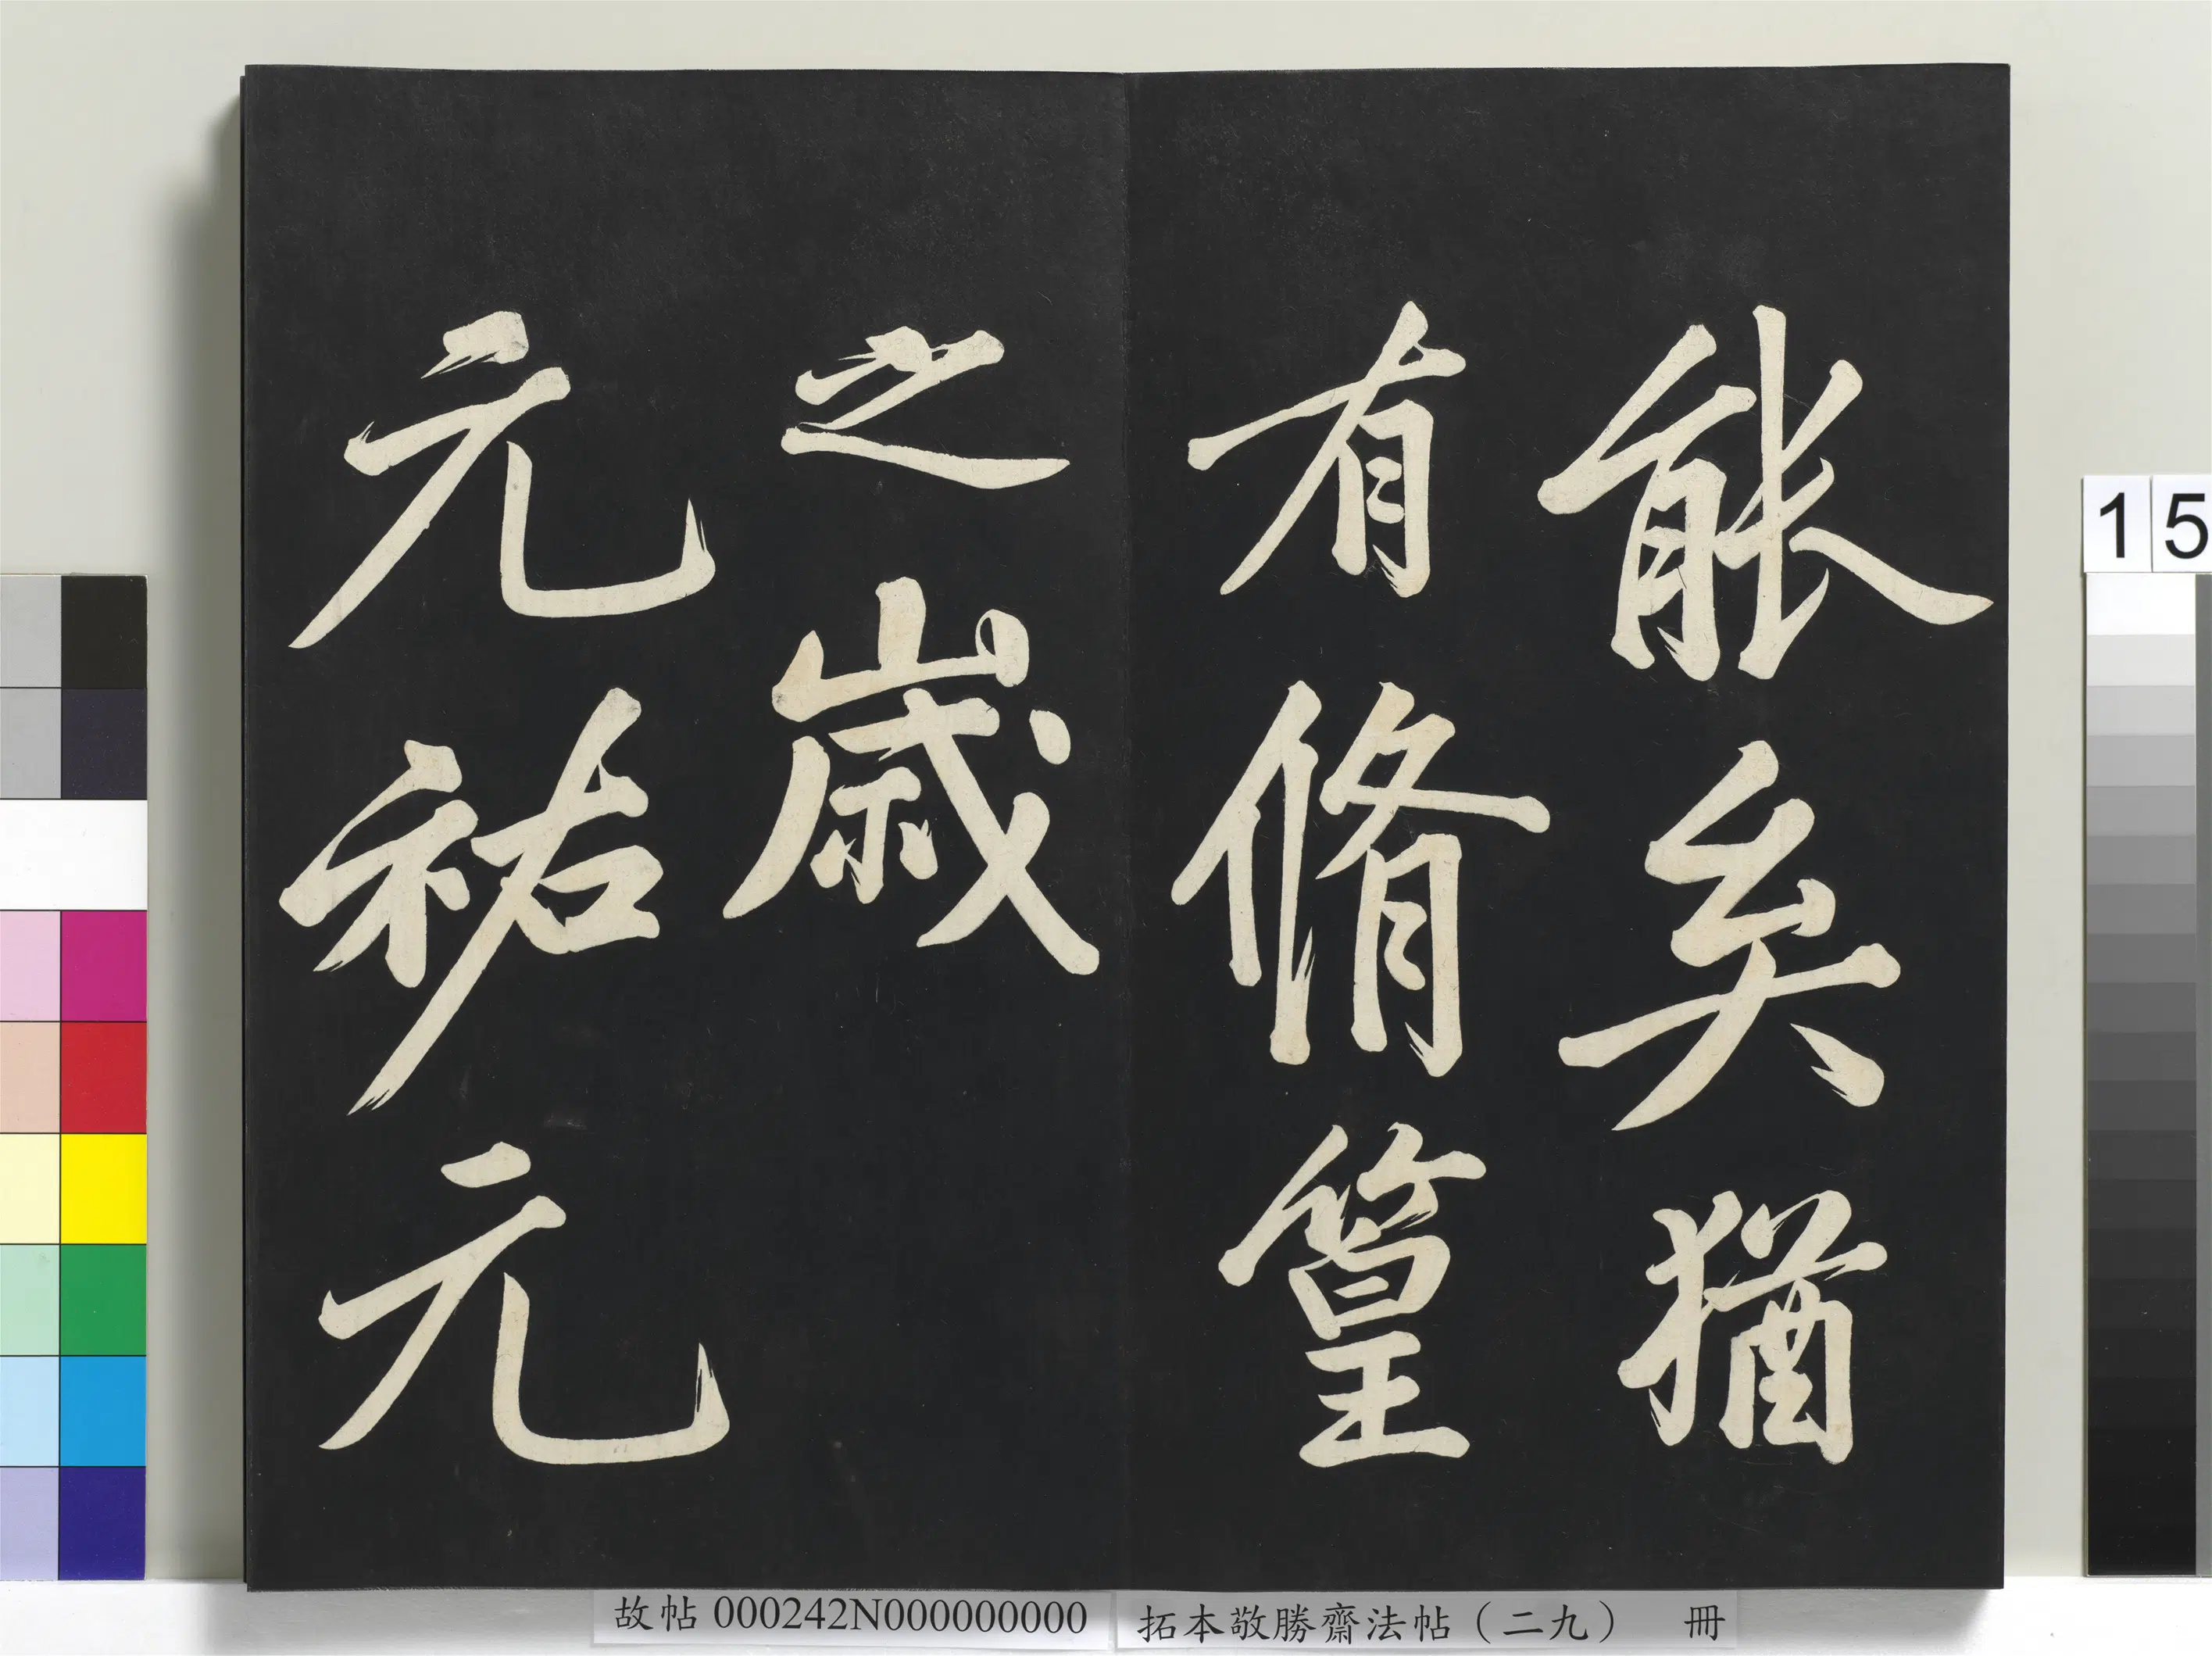 能矣猶
有脩篁
之歲
元祐元
故帖000242N000000000
拓本敬勝齋法帖(二九) 冊
15